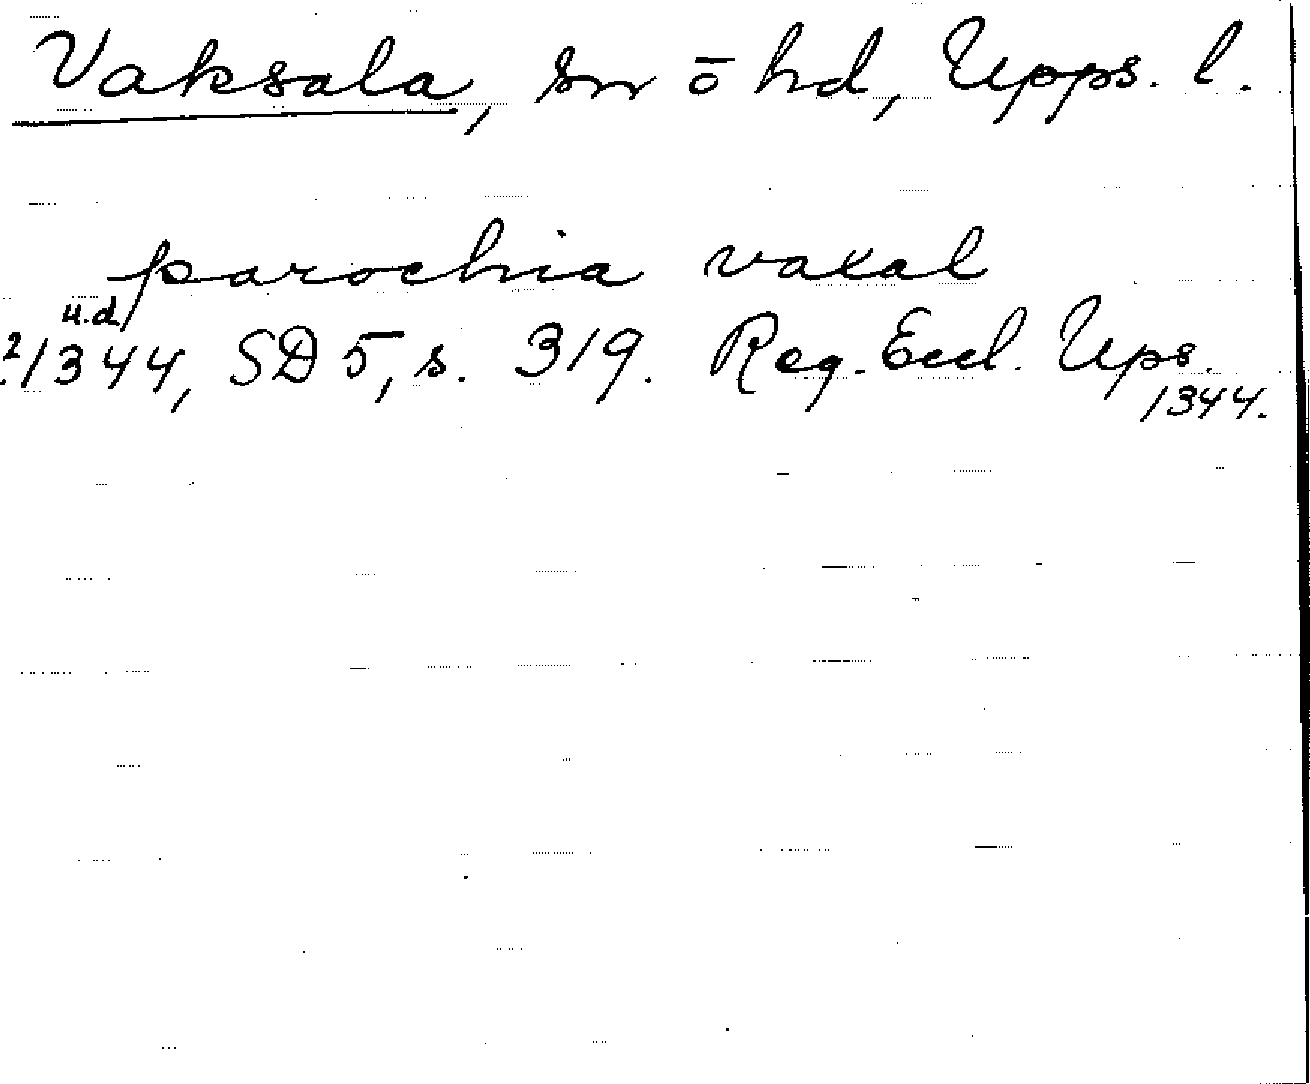 Vaksala, sn o hd, Upps. l.
parochia vaxal
u.d.
1344, SD 5, s. 319. Reg. Eccl. Ups.
1344.